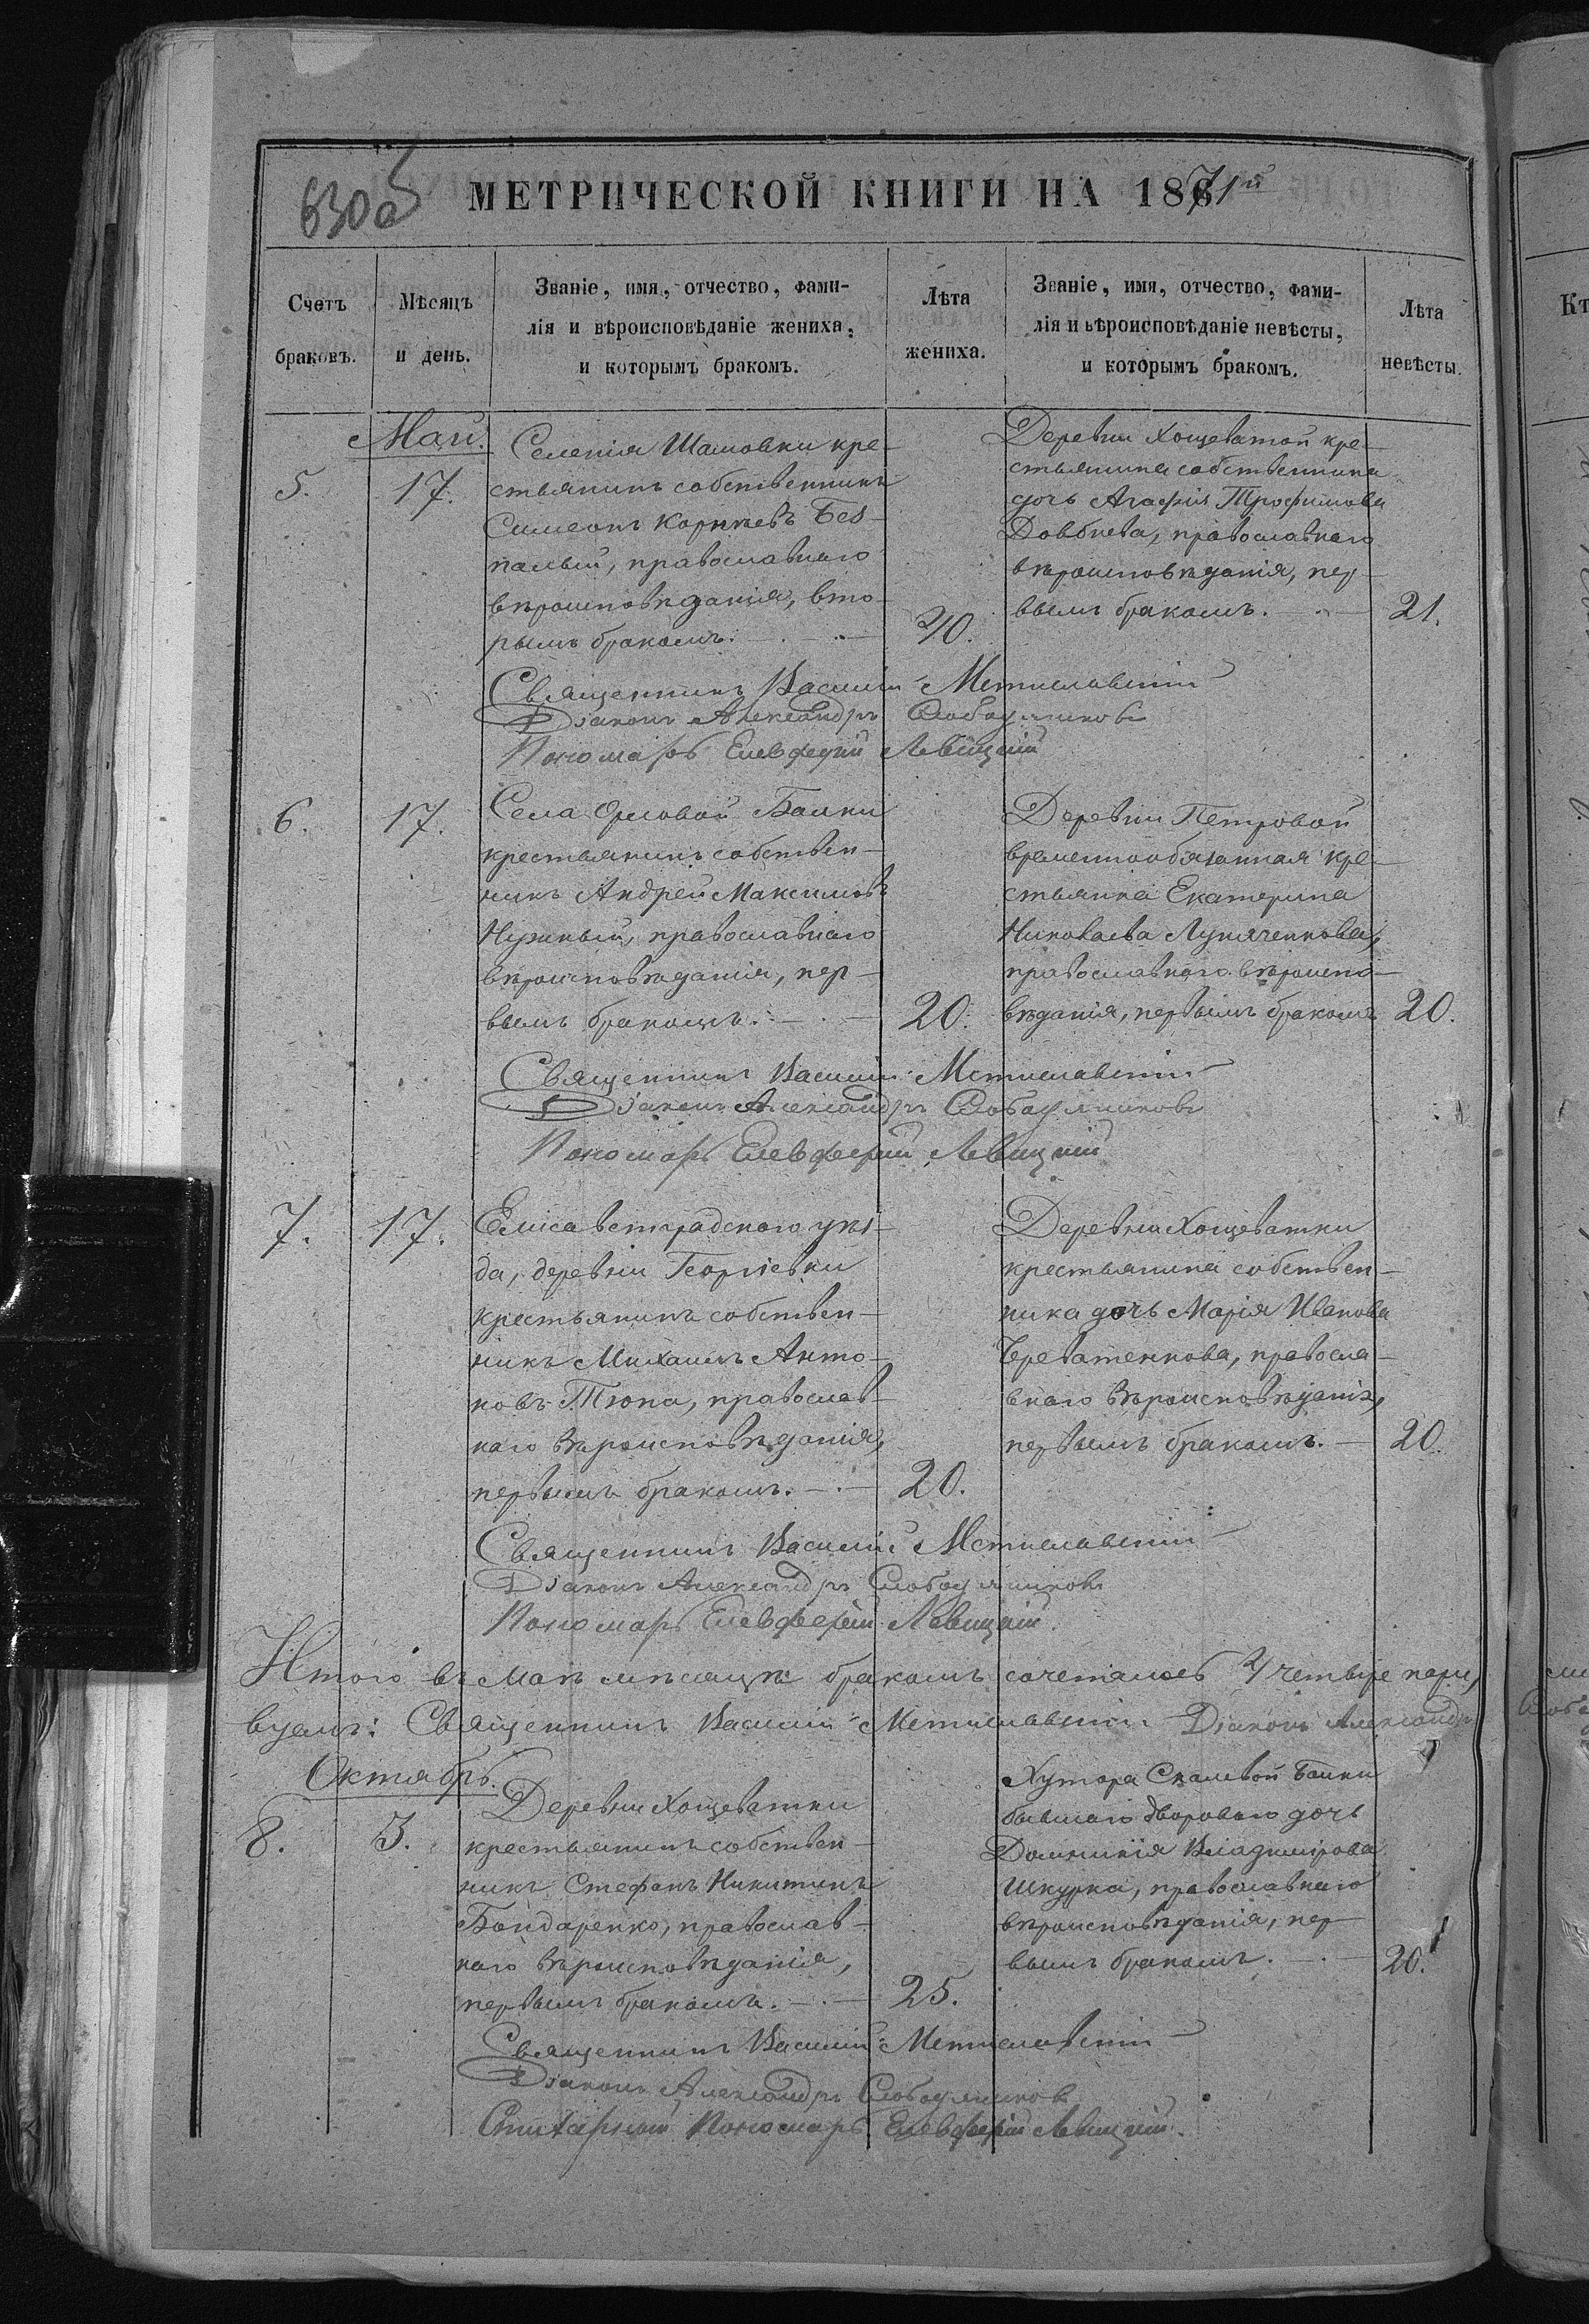 630об
МЕТРИЧЕСКОЙ КНИГИ НА 1871й
Счетъ
браковъ.
Мѣсяцъ
и день.
Званіе, имя, отчество, фами-
лія и вѣроисповѣданіе жениха,
и которымъ бракомъ.
Лѣта
жениха.
Званіе, имя, отчество, фами-
лія и вѣроисповѣданіе невѣсты,
и которымъ бракомъ.
Лѣта
невѣсты.
Май.
5.
17.
Селенія Шамовки кре-
стьянинъ собственникъ
Симеонъ Корнѣевъ Без-
палый, православнаго
вѣроисповѣданія, вто-
рымъ бракомъ.
40.
Деревни Хощеватой кре-
стьянина собственника
дочь Агафія Трофимова
Довбнева, православнаго
вѣроисповѣданія, пер-
вымъ бракомъ.
21.
Священникъ Василій Мстиславскій
Діаконъ Александръ Слободяниковъ
Пономарь Елевферій Левицкій
6.
17.
Села Орловой Балки
крестьянинъ собствен-
никъ Андрей Максимовъ
Нужный, православнаго
вѣроисповѣданія, пер-
вымъ бракомъ.
20.
Деревни Петровой
временнообязанная кре-
стьянка Екатерина
Николаева Лупяченкова,
православнаго вѣроиспо-
вѣданія, первымъ бракомъ
20.
Священникъ Василій Мстиславскій
Діаконъ Александръ Слободяниковъ
Пономарь Елевферій Левицкій
7.
17.
Елисаветградскаго уѣз-
да, деревни Георгіевки
крестьянинъ собствен-
никъ Михаилъ Анто-
новъ Тюпа, православ-
наго вѣроисповѣданія,
первымъ бракомъ.
20.
Деревни Хощеватки
крестьянина собствен-
ника дочь Марія Иванова
Череватенкова, правосла-
внаго вѣроисповѣданія,
первымъ бракомъ.
20.
Священникъ Василій Мстиславскій
Діаконъ Александръ Слободяниковъ
Пономарь Елевферій Левицкій
Итого въ Маѣ мѣсяцѣ бракомъ сочеталось 4 четыре пары,
Священникъ Василій Мстиславскій Діаконъ Александръ
Октябрь.
8.
3.
Деревни Хощеватки
крестьянинъ собствен-
никъ Стефанъ Никитинъ
Бондаренко, православ-
наго вѣроисповѣданія,
первымъ бракомъ.
25.
Хутора Скалевой Балки
бывшаго двороваго дочь
Домникія Владимірова
Шкурка, православнаго
вѣроисповѣданія, пер-
вымъ бракомъ.
20.
Священникъ Василій Мстиславскій
Діаконъ Александръ Слободяниковъ
Стихарный Пономарь Елевферій Левицкій.